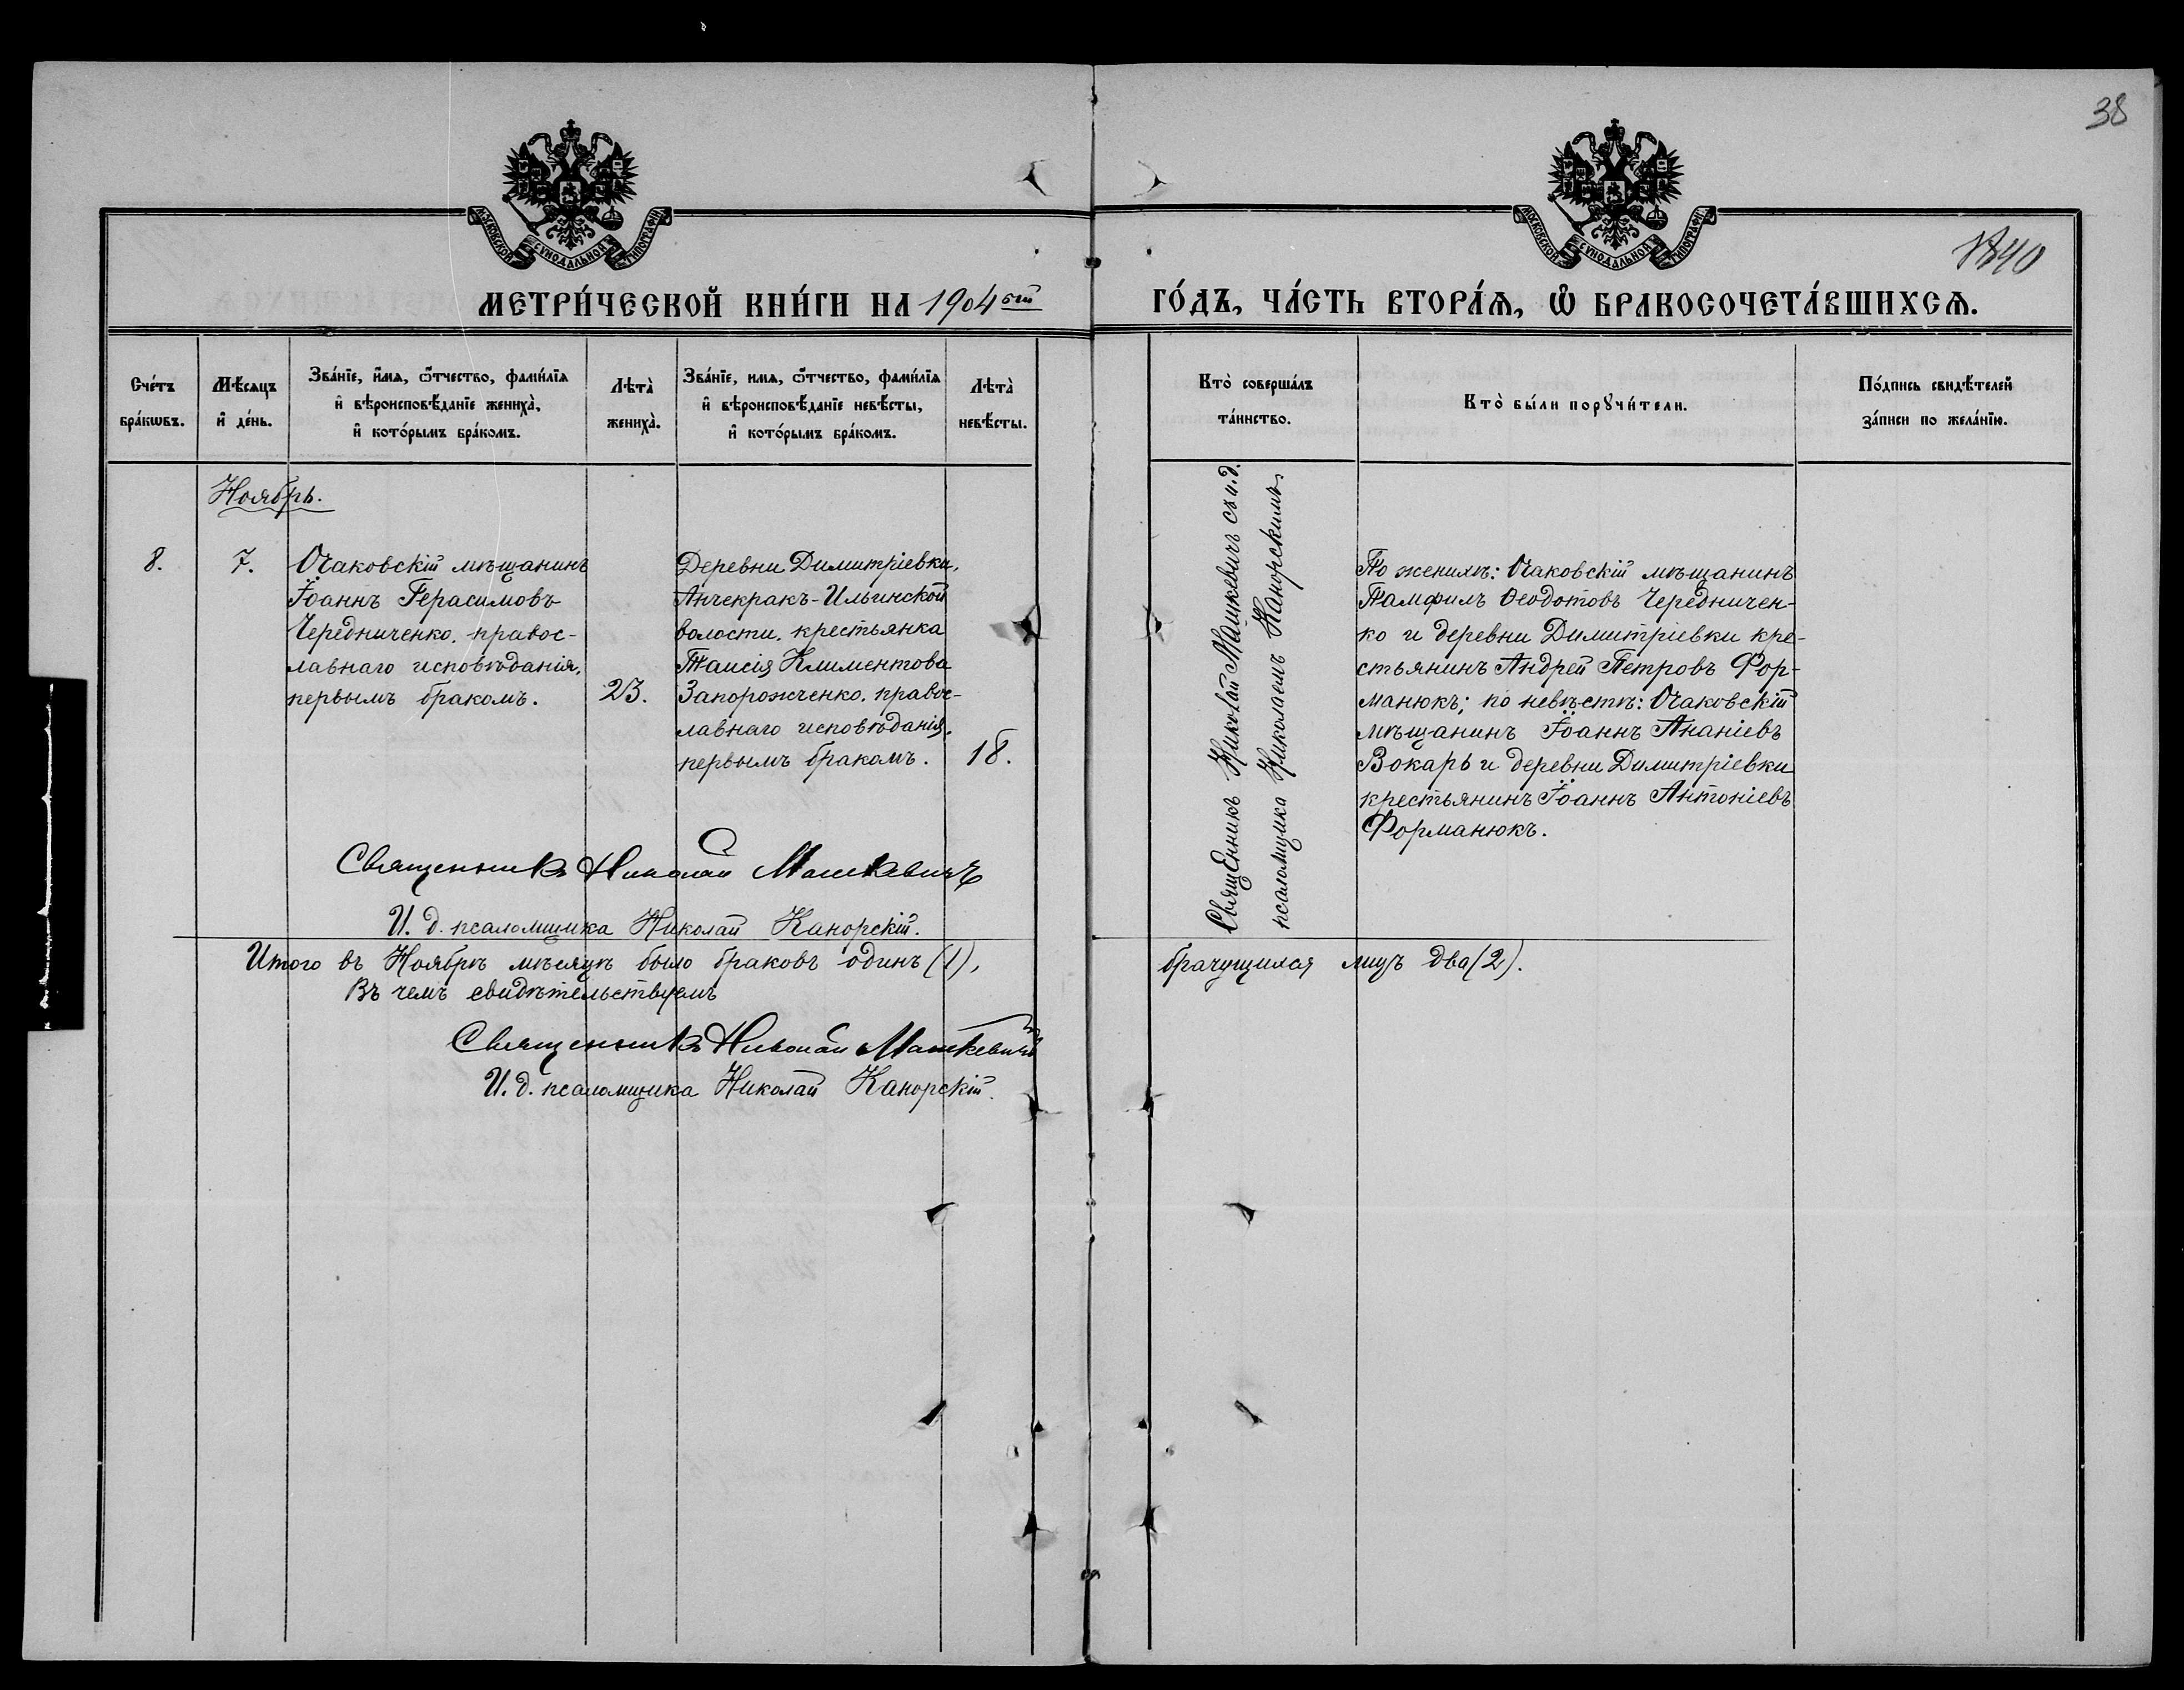 38
МОСКОВСКОЙ СѴНОДАЛЬНОЙ ТИПОГРАФІИ
МОСКОВСКОЙ СѴНОДАЛЬНОЙ ТИПОГРАФІИ
МЕТРИ́ЧЕСКОЙ КНИ́ГИ НА 1904 ый ГО́ДЪ, ЧА́СТЬ ВТОРА́Ѧ, Ѽ БРАКОСОЧЕТА́ВШИХСѦ.
Сче́тъ бра́кѡвъ.
Мѣ́сяцъ и҆ де́нь.
Зва́нїе, и҆́мя, ѻ҆́тчество, фамѝлїя
и҆ вѣроисповѣ́данїе жениха̀,
и҆ кото́рымъ бра́комъ.
Лѣта̀ жениха̀.
Зва́нїе, имя, ѻ҆́тчество, фамѝлїя
и҆ вѣроисповѣ́данїе невѣ́сты,
и҆ кото́рымъ бра́комъ.
Лѣта̀ невѣ́сты.
Кто̀ соверша́лъ та́инство.
Кто̀ бы́ли порꙋчи́тели.
По́дпись свидѣ́телей
за́писи по жела́нїю.
Ноябрь.
8.
7.
Очаковскій мѣщанинъ
Іоаннъ Герасимовъ
Чередниченко, правос-
лавнаго исповѣданія,
первымъ бракомъ.
23.
Деревни Димитріевки,
Анчекракъ-Ильинской
волости, крестьянка
Таисія Климентова
Запорожченко, правос-
лавнаго исповѣданія,
первымъ бракомъ.
18.
Священникъ Николай Машкевичъ съ и.д.
псаломщика Николаемъ Канорскимъ
По женихѣ: Очаковскій мѣщанинъ
Памфилъ Ѳеодотовъ Чередничен-
ко и деревни Димитріевки кре-
стьянинъ Андрей Петровъ Фор-
манюкъ; по невѣстѣ: Очаковскій
мѣщанинъ Іоаннъ Ананіевъ
Вокарь и деревни Димитріевки
крестьянинъ Іоаннъ Антоніевъ
Форманюкъ.
Священникъ Николай Машкевичъ
И. д. псаломщика Николай Канорскій.
Итого въ Ноябрѣ мѣсяцѣ было браковъ одинъ (1), брачущихся лицъ два (2).
Въ чемъ свидѣтельствуемъ
Священникъ Николай Машкевичъ
И. д. псаломщика Николай Канорскій.